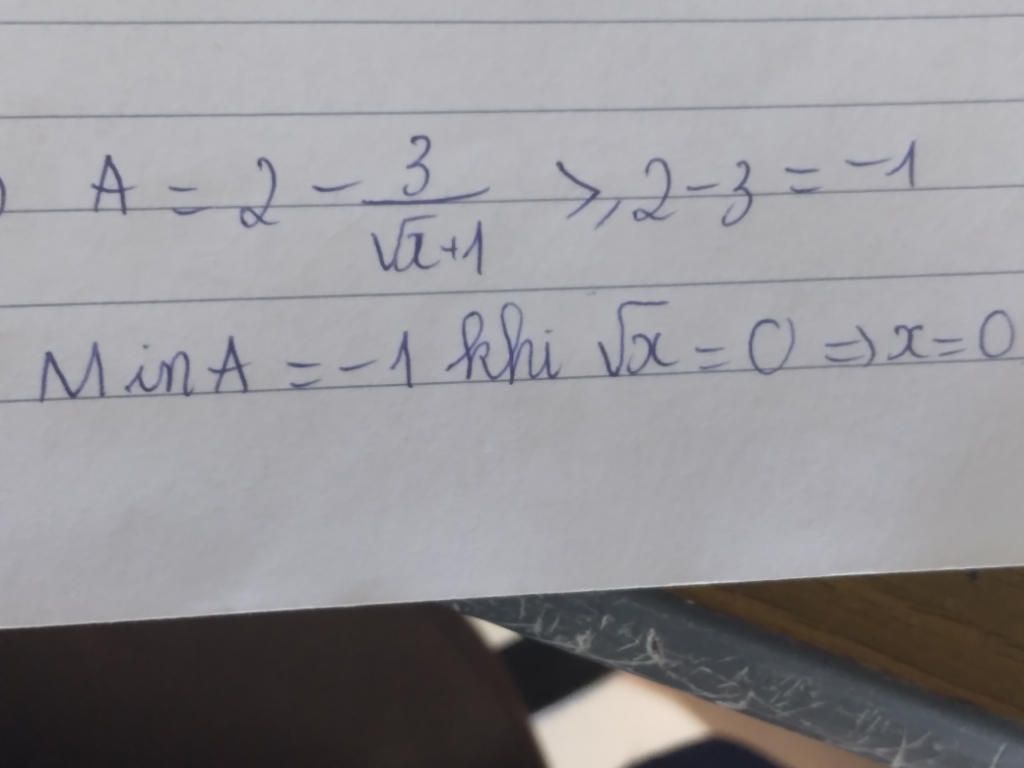 ) A = 2 - 3/(√x+1) ≥ 2-3 = -1
Min A = -1 khi √x = 0 => x = 0